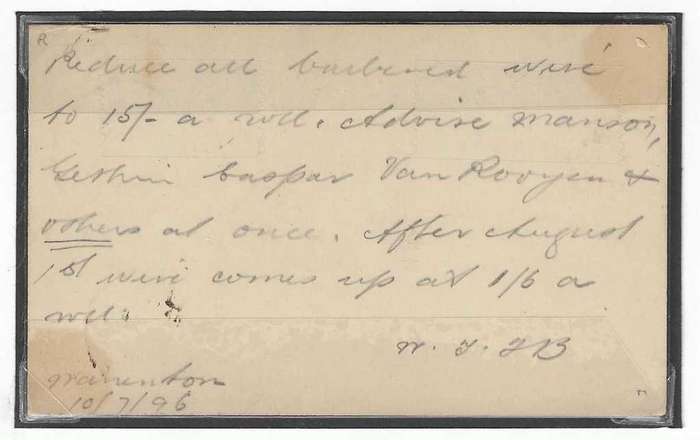 Reduce all barbered wire
to 15/- a roll. Advise Manson,
Caspar Van Rooyen &
others at once. After August
1st wire comes up at 1/6 a
roll.
W.
Warrenton
10/7/96